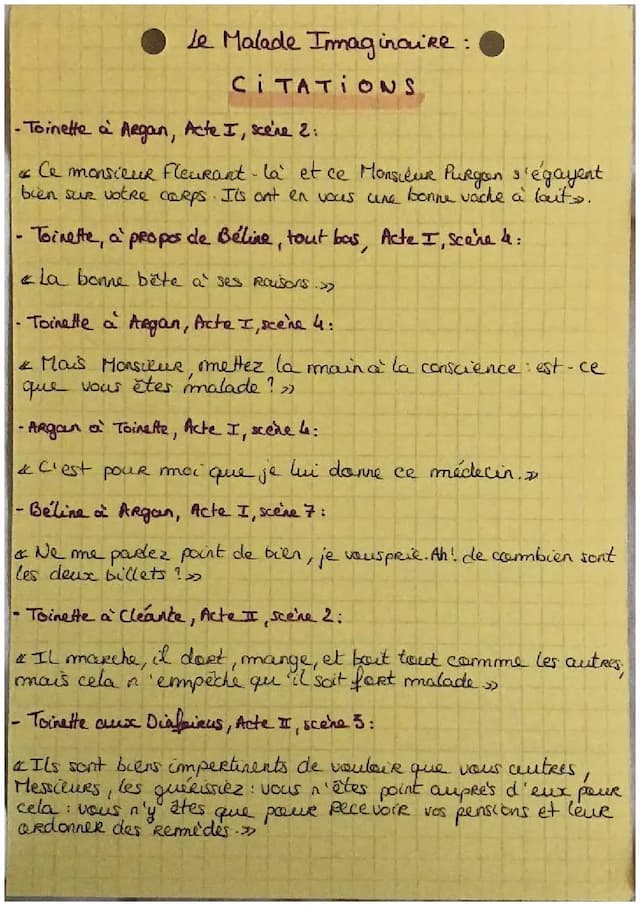 Le Malade Imaginaire :
CITATIONS
- Toinette à Argan, Acte I, scène 2 :
« Ce monsieur Fleurant-là et ce Monsieur Purgon s'égayent
bien sur votre corps. Ils ont en vous une bonne vache à lait ».
- Toinette, à propos de Béline, tout bas, Acte I, scène 4 :
« La bonne bête à ses raisons. »
- Toinette à Argan, Acte I, scène 4 :
« Mais Monsieur, mettez la main à la conscience : est-ce
que vous êtes malade ? »
- Argan à Toinette, Acte I, scène 4 :
« C'est pour moi que je lui donne ce médecin. »
- Béline à Argan, Acte I, scène 7 :
« Ne me parlez point de bien, je vous prie. Ah ! de combien sont
les deux billets ? »
- Toinette à Cléante, Acte II, scène 2 :
« Il marche, il dort, mange, et boit tout comme les autres,
mais cela n'empêche qu'il soit fort malade »
- Toinette aux Diafoirus, Acte II, scène 5 :
« Ils sont biens impertinents de vouloir que vous autres,
Messieurs, les guérissiez : vous n'êtes point auprès d'eux pour
cela : vous n'y êtes que pour recevoir vos pensions et leur
ordonner des remèdes. »